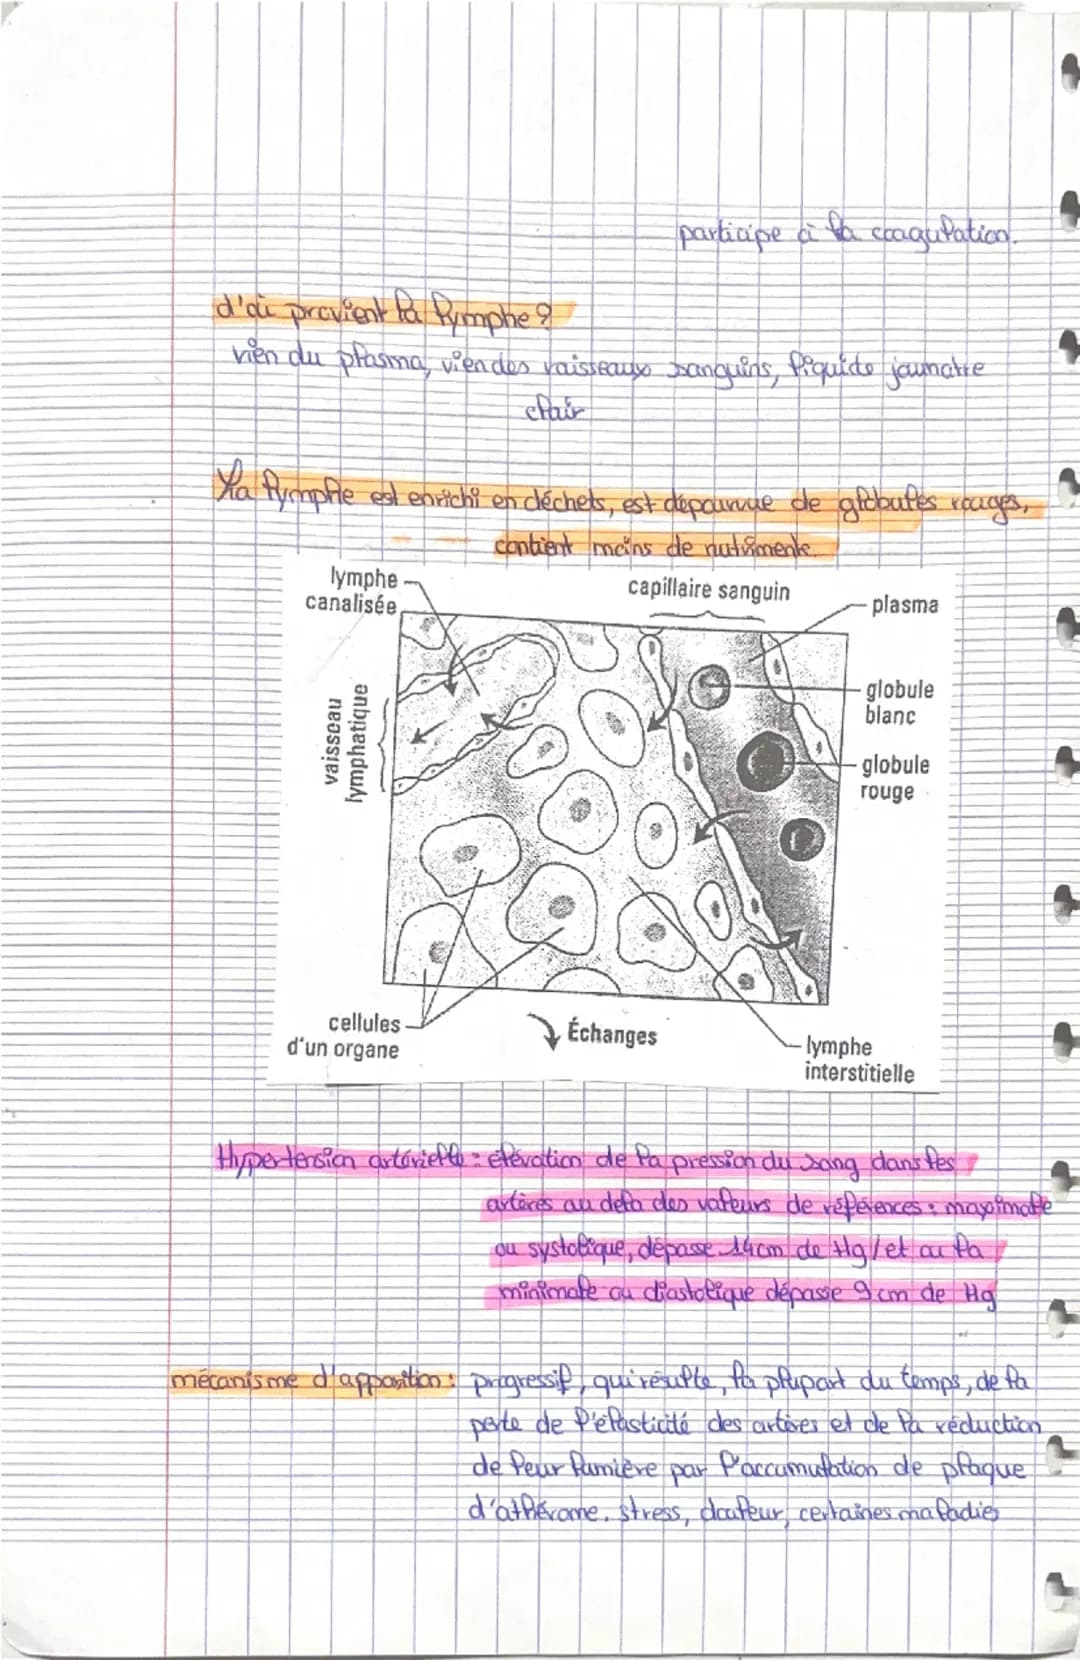 participe à la coagulation.
d'où provient la lymphe ?
vien du plasma, vien des vaisseaux sanguins, liquide jaunatre
clair
La lymphe est enrichi en déchets, est dépourvue de globules rouges,
contient moins de nutriments.
lymphe
canalisée
capillaire sanguin
plasma
vaisseau
lymphatique
globule
blanc
globule
rouge
cellules
d'un organe
Échanges
lymphe
interstitielle
Hypertension artérielle : élévation de la pression du sang dans les
artères au dela des valeurs de références : maximale
ou systolique, dépasse 14cm de Hg / et ou la
minimale ou diastolique dépasse 9 cm de Hg
mécanisme d'apparition : progressif, qui résulte, la plupart du temps, de la
perte de l'élasticité des artères et de la réduction
de leur lumière par l'accumulation de plaque
d'athérome. stress, douleur, certaines maladies